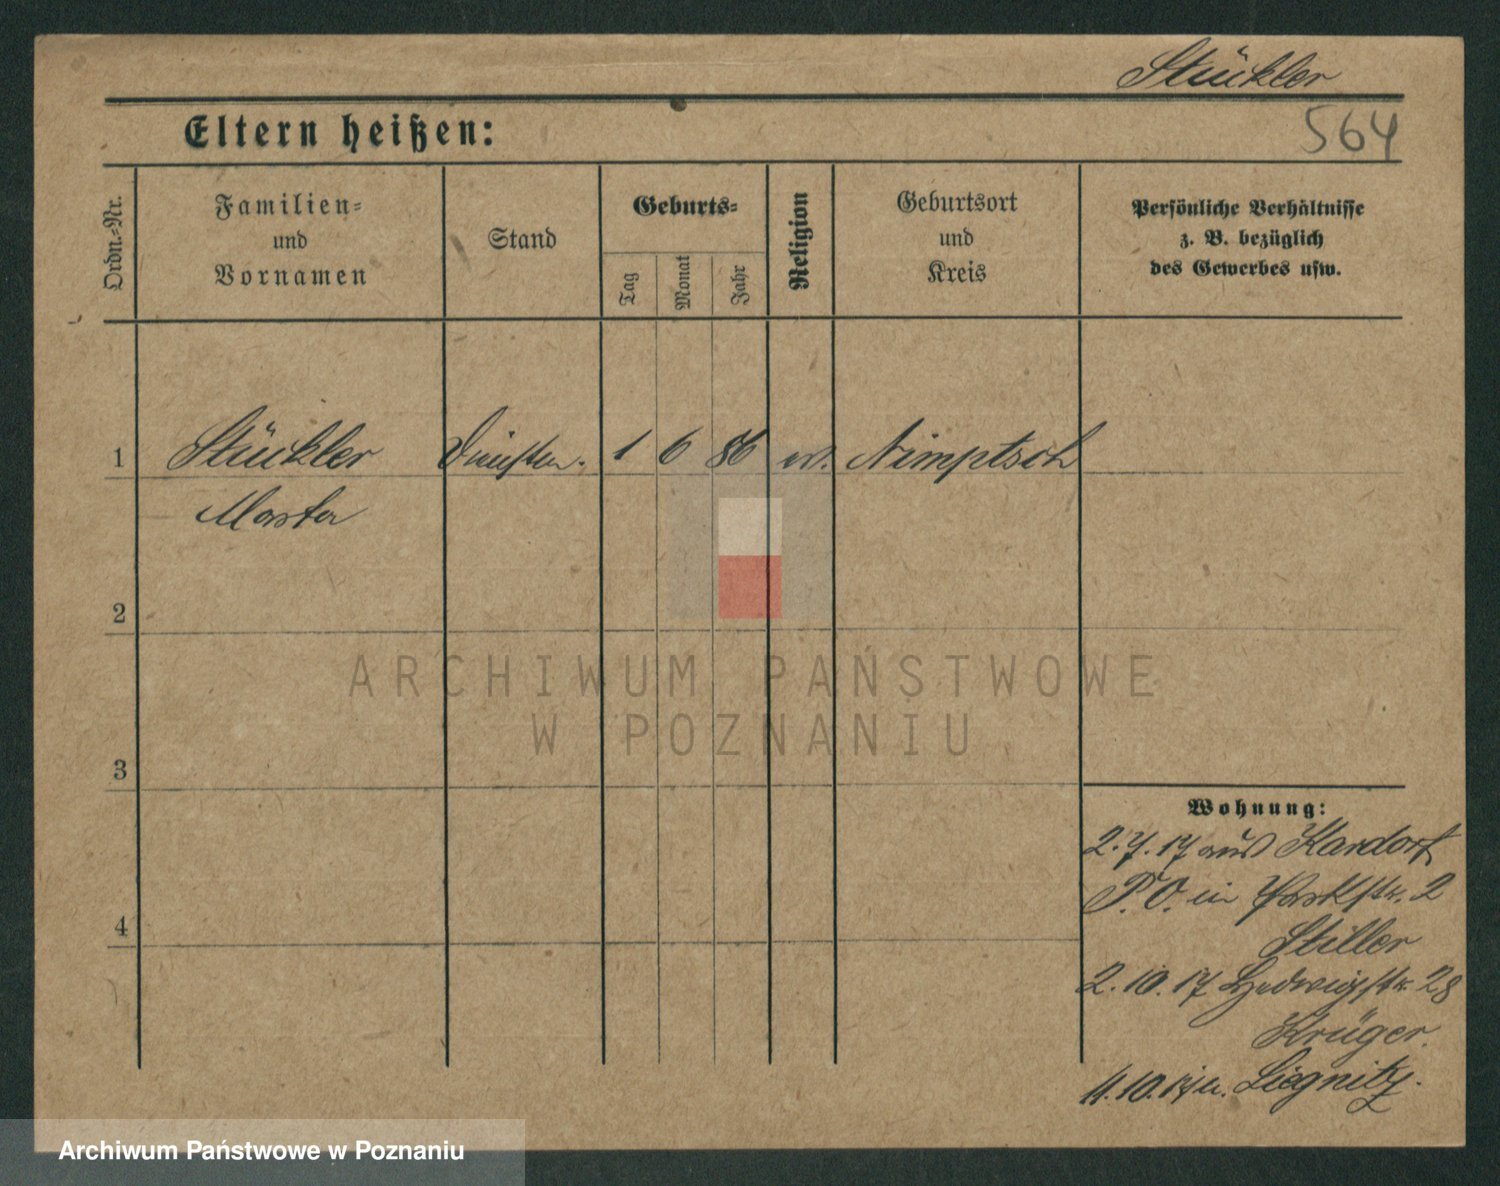 Stückler
564
Eltern heißen:
Ordn.-Nr.
Familien-
und
Vornamen
Stand
Geburts-
Tag
Monat
Jahr
Religion
Geburtsort
und
Kreis
Persönliche Verhältnisse
z. B. bezüglich
des Gewerbes usw.
1 Stückler 1 6 86 ev. Nimptsch
Marta
2
3
4
ARCHIWUM PAŃSTWOWE
W POZNANIU
Wohnung:
2.7.17 aus Kardorf
P.O. in Parkstr. 2
Stiller
2.10.17 Hedwigstr. 28
Krüger.
11.10.17 n. Liegnitz.
Archiwum Państwowe w Poznaniu